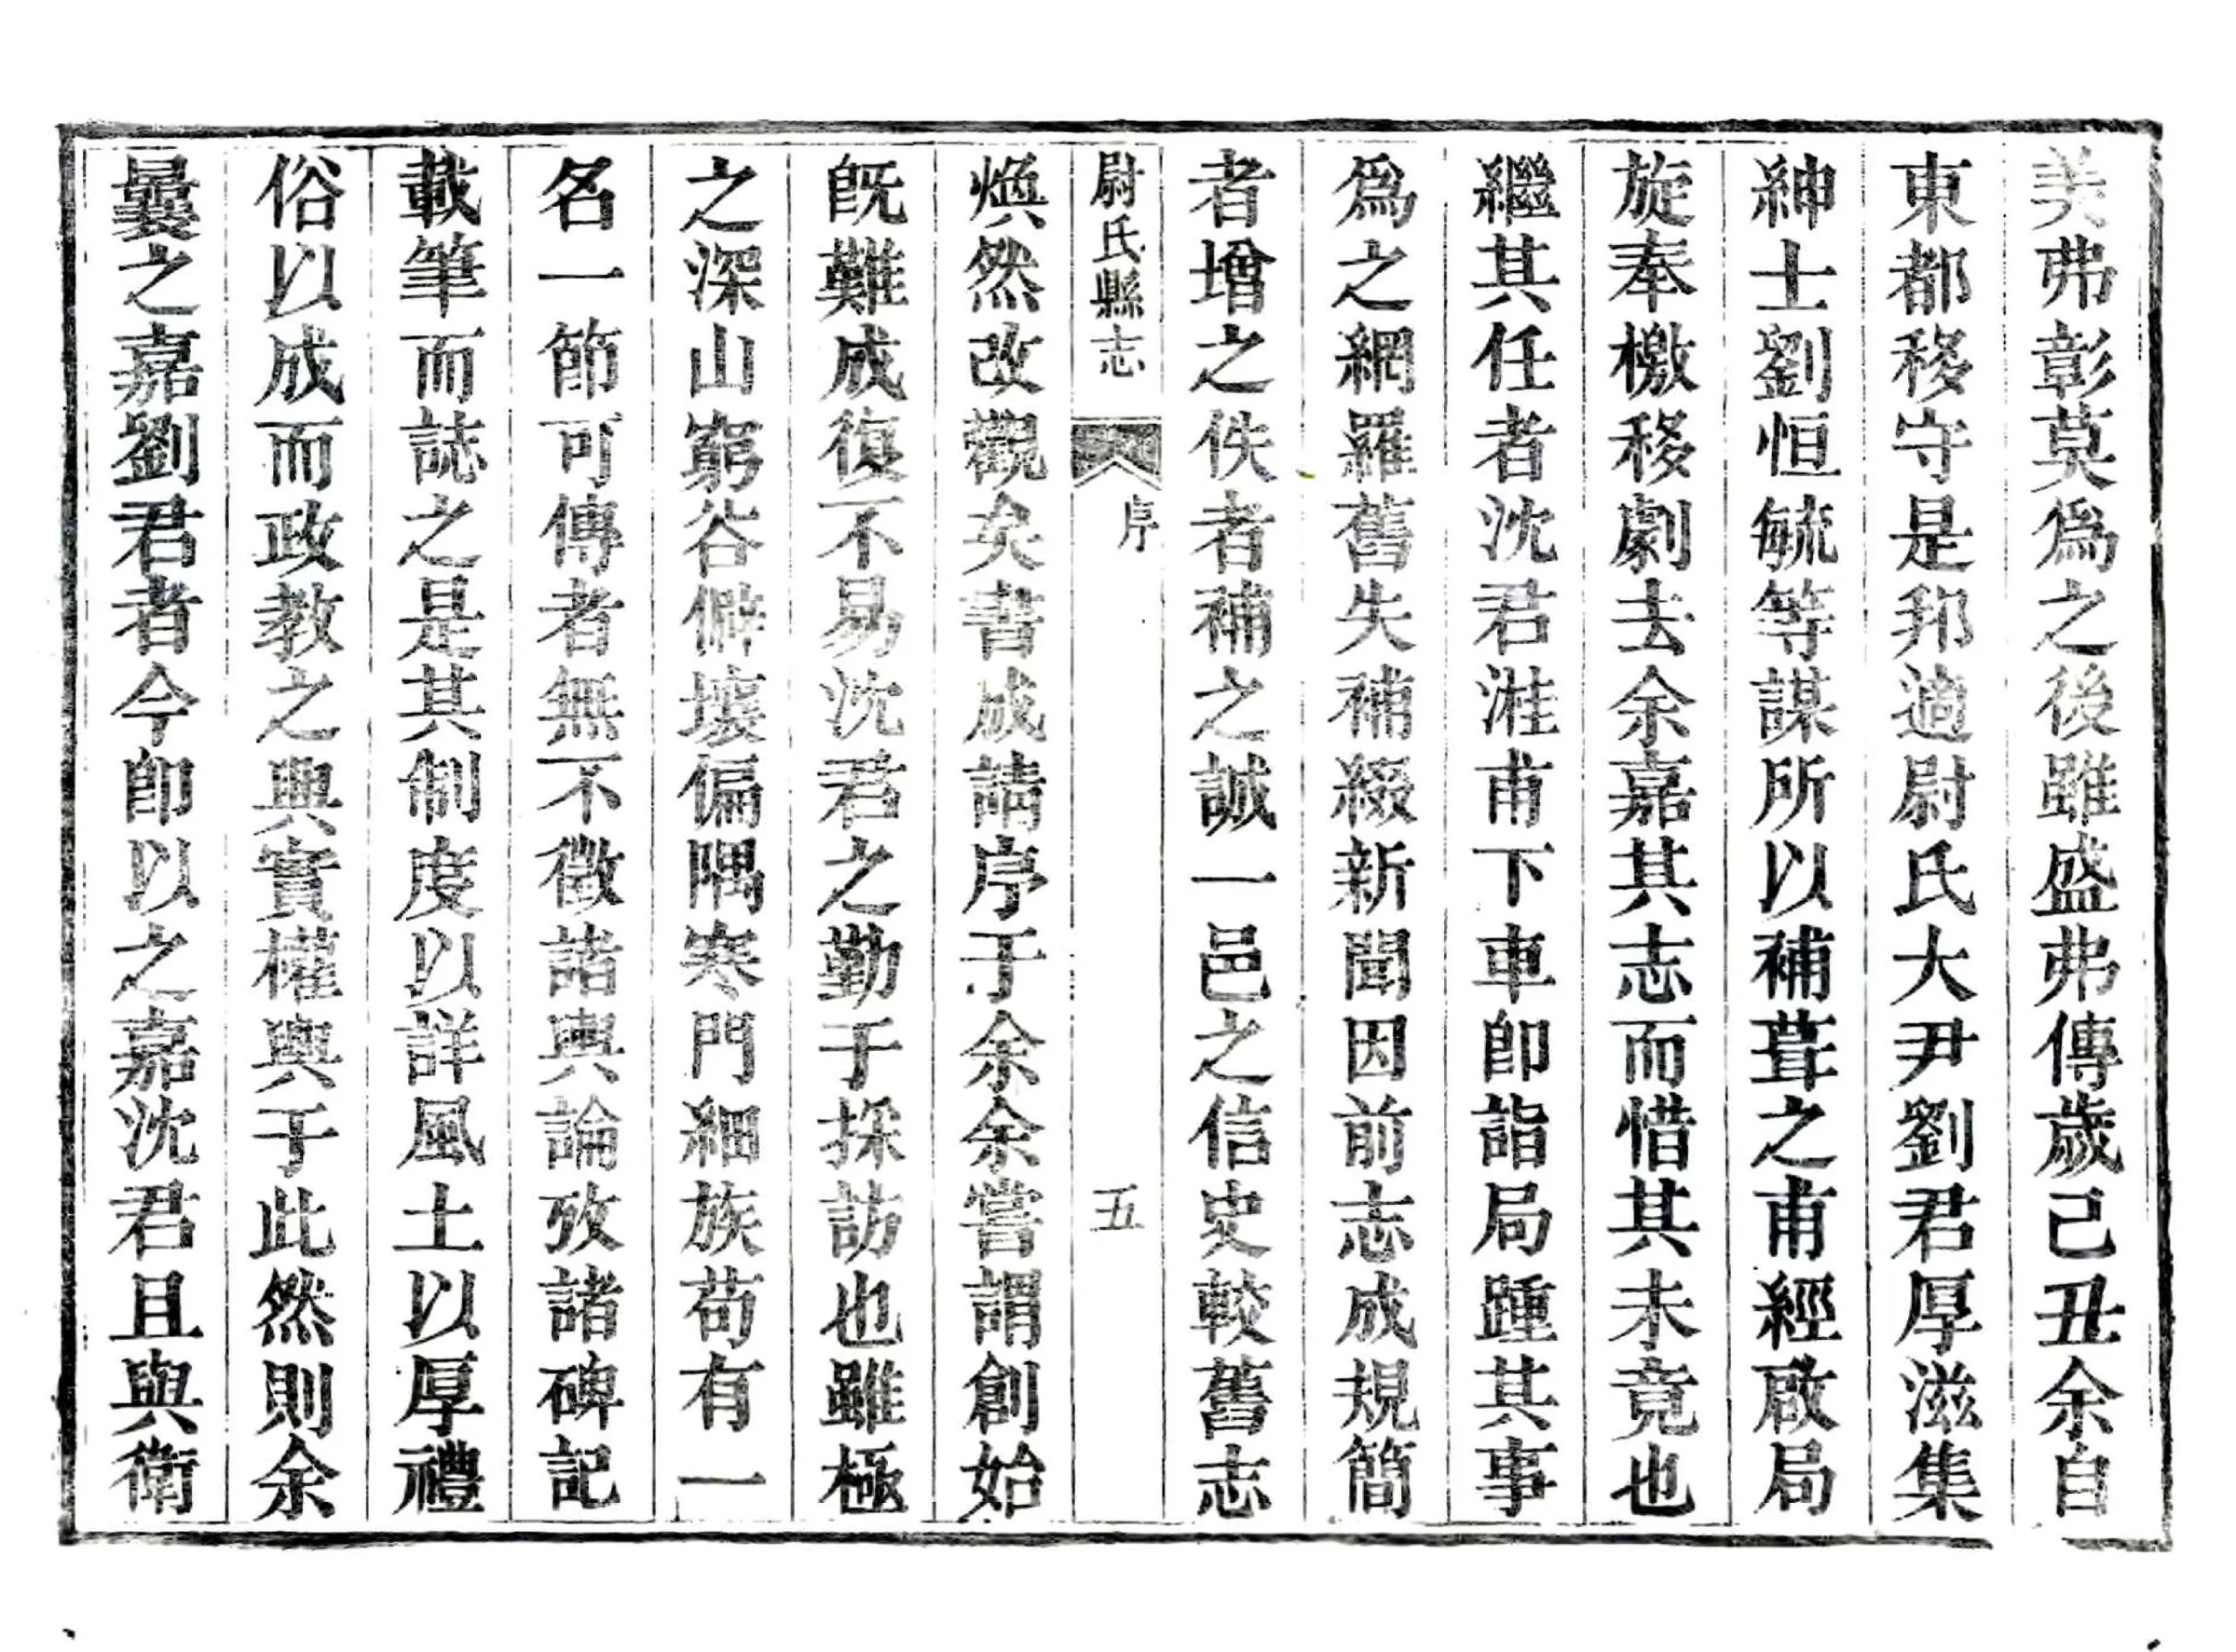 美弗彰莫爲之後雖盛弗傳歲己丑余自
東都移守是邦適尉氏大尹劉君厚滋集
紳士劉恒毓等謀所以補葺之甫經啟局
旋奉檄移劇去余嘉其志而惜其未竟也
繼其任者沈君溎甫下車卽詣局踵其事
爲之網羅舊失補綴新聞因前志成規簡
者增之佚者補之誠一邑之信史較舊志
尉氏縣志
序
五
煥然改觀矣書成請序于余余嘗謂創始
旣難成復不易沈君之勤于採訪也雖極
之深山窮谷僻壤偏隅寒門細族苟有一
名一節可傳者無不徵諸輿論攷諸碑記
載筆而誌之是其制度以詳風土以厚禮
俗以成而政教之興實權輿于此然則余
曩之嘉劉君者今卽以之嘉沈君且與衛